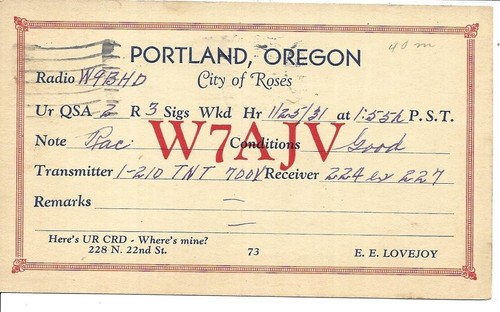 40 m
PORTLAND, OREGON
Radio W9BHD City of Roses
Ur QSA 2 R 3 Sigs Wkd Hr 1/25/31 at 1:55A P. S. T.
W7AJV
Note Rac Conditions Good
Transmitter 1-210 TNT 700V Receiver 224 & 227
Remarks —
—
Here's UR CRD - Where's mine? 73 E. E. LOVEJOY
228 N. 22nd St.